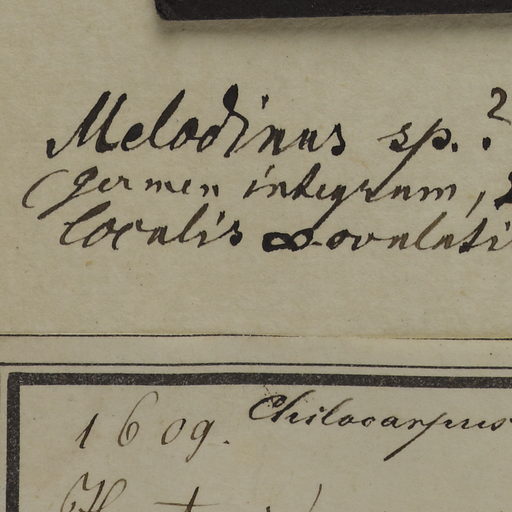 Melodinus sp.?
(germen integrum, 2
localis ∞-ovulati
1609. Chilocarpus